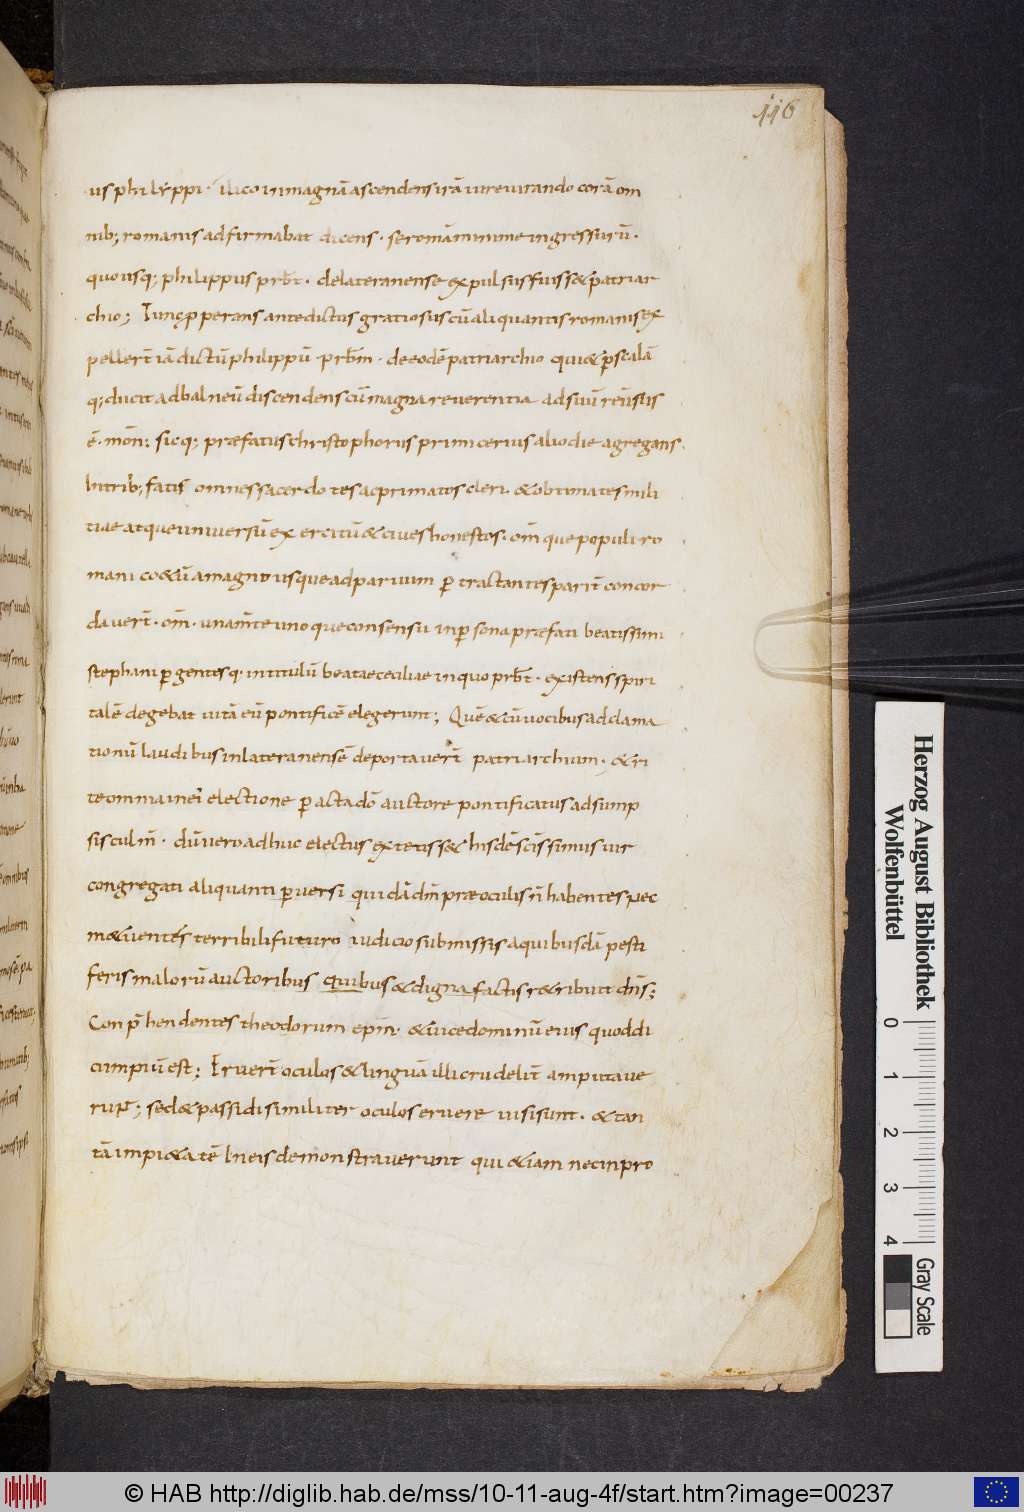 116
us philyppi · ilico in magnā ascendens irā iureiurando corā om
nib; romanis adfirmabat dicens · se romā minime ingressurū ·
quousq; philippus prbt̄ · de lateranense expulsus fuiss& patriar
chio; Tunc p̄perans antedictus gratiosus cū aliquantis romanis ex
peller̄t iā dictū philippū prbm̄ · de eodē patriarchio qui & p scalā
q; ducit ad balneū discendens cū magna reverentia ad suū reūsus
ē · mon̄: sicq; præfatus christophorus primicerius alio die agregans
In trib; fatis omnes sacerdotes ac primatos cleri · & obtimates mili
tiae atque universū exercitū & cives honestos · om̄que populi ro
mani co&ū a magno usque ad parvum p tractantes parit̄ concor
daver̄t · om̄ · unam̄te uno que consensu in p sona præfati beatissimi
stephani p gentesq · in titulū beatae ceciliae in quo prbt̄ · existens spiri
talē degebat vitā eū pontificē elegerunt; Quē & cū vocibus adclama
tionū laudibus in lateranensē deportaver̄t patriarchium · & ri
te omma in ei electione p acta dō auctore pontificatus ad sump
sis culm̄ · dū vero adhuc electus extetiss& hisdē scīssimus vir
congregati aliquanti p versi quidā dm̄ præ oculis n̄ habentes nec
m&uentes terribili futuro iudicio submissis a quibusdā pesti
feris malorū auctoribus quibus & digna factis r&ribuit dn̄s;
Conp̄hendentes theodorum epm̄ · & vicedominū eius quod di
ci impiū est; Eruer̄t oculos & linguā illi crudelit̄ amputave
runt; sed & passi di similiter oculos eruere visi sunt · & tan
tā impi&atē In eis demonstraverunt qui &iam nec in pro
Herzog August Bibliothek
Wolfenbüttel
0 1 2 3 4
Gray Scale
© HAB http://diglib.hab.de/mss/10-11-aug-4f/start.htm?image=00237